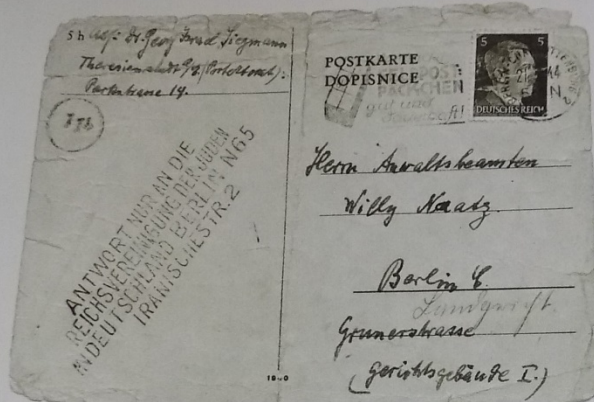 Georg Israel Siegmann
Theresienstadt
Parkstrasse 14.
ANTWORT NUR AN DIE
REICHSVEREINIGUNG DER JUDEN
IN DEUTSCHLAND BERLIN N65
IRANISCHESTR. 2
POSTKARTE
DOPISNICE
PÄCKCHEN
gut und
dauerhaft!
5 5
DEUTSCHES REICH
44
Herrn Anwaltsbeamten
Willy Naatz
Berlin C.
Landgericht
Grunerstrasse
(Gerichtsgebäude I.)